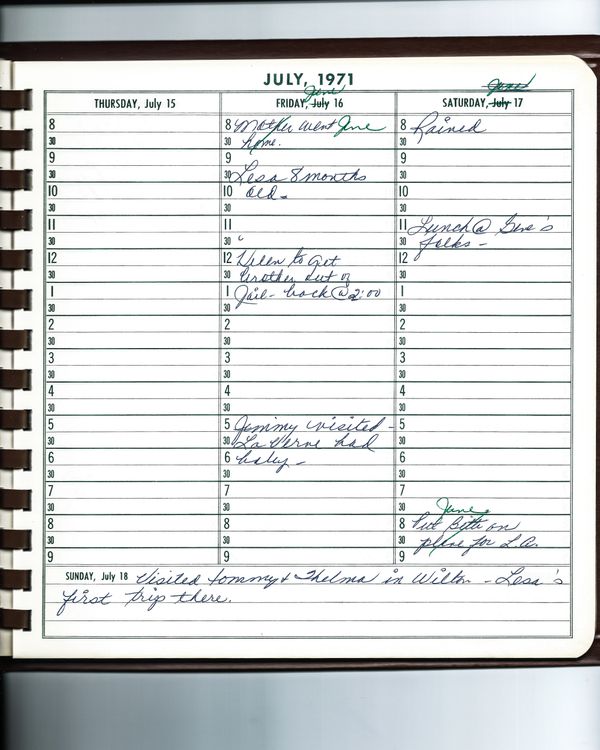 JULY, 1971
THURSDAY, July 15
8
30
9
30
10
30
11
30
12
30
1
30
2
30
3
30
4
30
5
30
6
30
7
30
8
30
9
June
FRIDAY, July 16
8 Mother went June
30 home.
9
30 Lesa 8 months
10 old -
30
11
30
12 Helen to get
30 brother out of
1 Jail - back @ 2:00
30
2
30
3
30
4
30
5 Jimmy visited -
30 La Verne had
6 baby -
30
7
30
8
30
9
June
SATURDAY, July 17
8 Rained
30
9
30
10
30
11 Lunch @ Gene's
30 folks -
12
30
1
30
2
30
3
30
4
30
5
30
6
30
7
30 June
8 Put on
30 plane for L.A.
9
SUNDAY, July 18 Visited Tommy & Thelma in Wilton - Lesa's
first trip there.